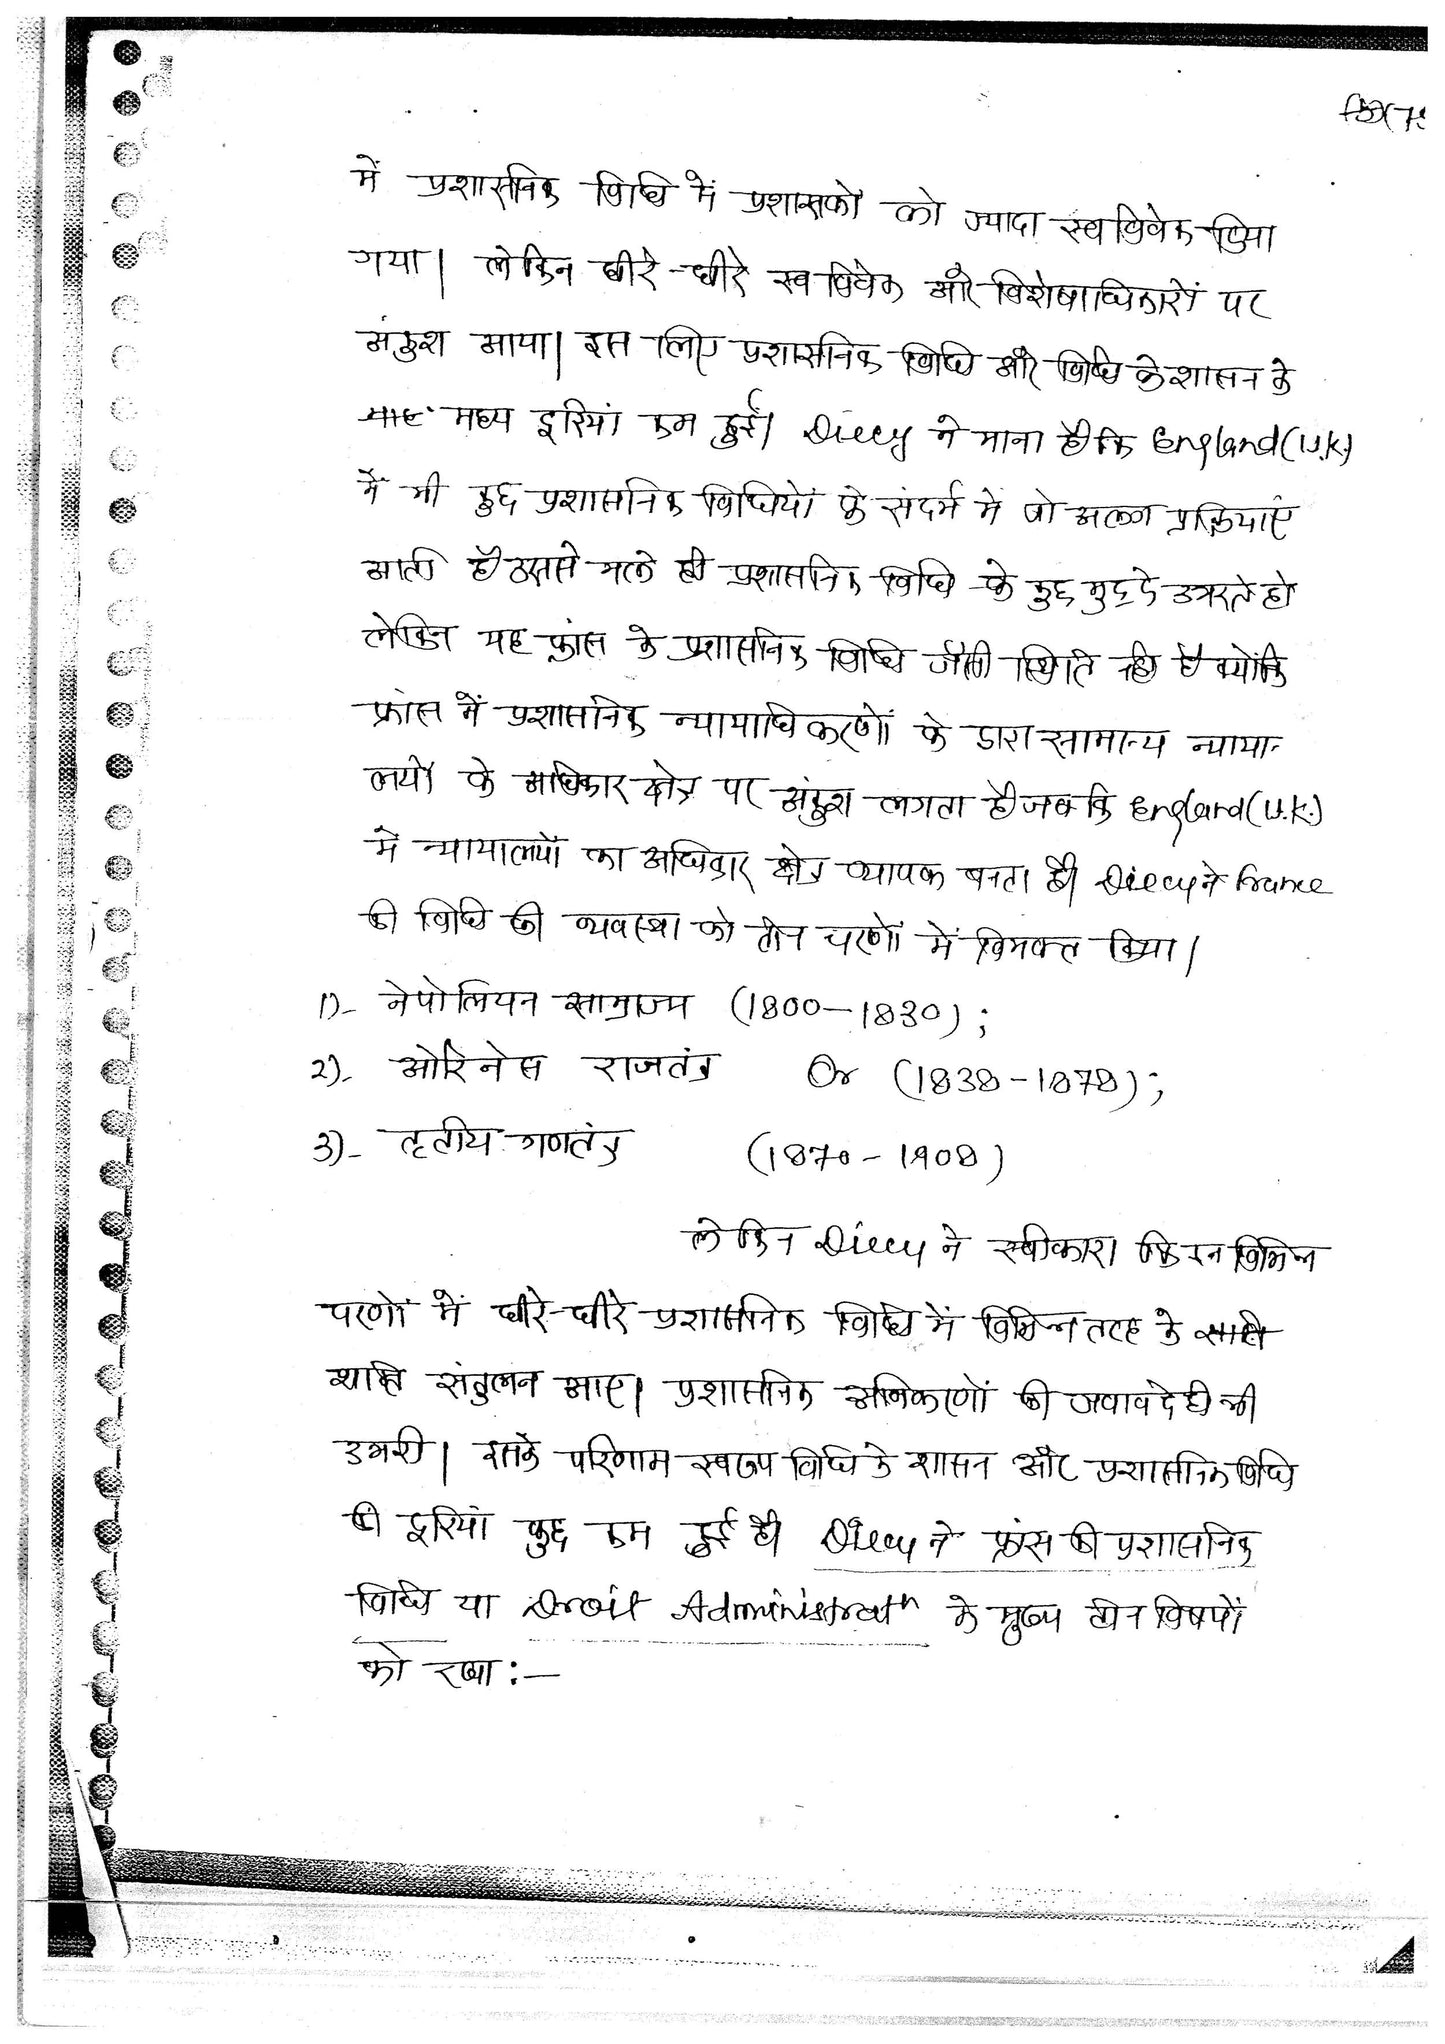 में प्रशासनिक विधि में प्रशासकों को ज्यादा स्व विवेक दिया
गया। लेकिन धीरे-धीरे स्व विवेक और विशेषाधिकारों पर
अंकुश आया। इस लिए प्रशासनिक विधि और विधि के शासन के
मध्य दूरियां कम हुई। Dicey ने माना है कि England (U.K.)
में भी कुछ प्रशासनिक विधियों के संदर्भ में जो अलग प्रक्रियाएं
आती है उससे भले ही प्रशासनिक विधि के कुछ मुद्दे उभरते हो
लेकिन यह फ्रांस के प्रशासनिक विधि जैसी स्थिति नही है क्योंकि
फ्रांस में प्रशासनिक न्यायाधिकरणों के द्वारा सामान्य न्याया-
लयों के अधिकार क्षेत्र पर अंकुश लगता है जब कि England (U.K.)
में न्यायालयों का अधिकार क्षेत्र व्यापक बनता है। Dicey ने France
की विधि की व्यवस्था को तीन चरणों में विभक्त किया।
1)- नेपोलियन साम्राज्य (1800-1830);
2)- ओरिनेस राजतंत्र Or (1838-1878);
3)- तृतीय गणतंत्र (1870-1908)
लेकिन Dicey ने स्वीकारा कि इन विभिन्न
चरणों में धीरे-धीरे प्रशासनिक विधि में विभिन्न तरह के
शक्ति संतुलन आए। प्रशासनिक अभिकरणों की जवाबदेही भी
उभरी। इसके परिणाम स्वरूप विधि के शासन और प्रशासनिक विधि
की दूरियां कुछ कम हुई है। Dicey ने फ्रांस की प्रशासनिक
विधि या Droit Administratn के मुख्य तीन विषयों
को रखा :-